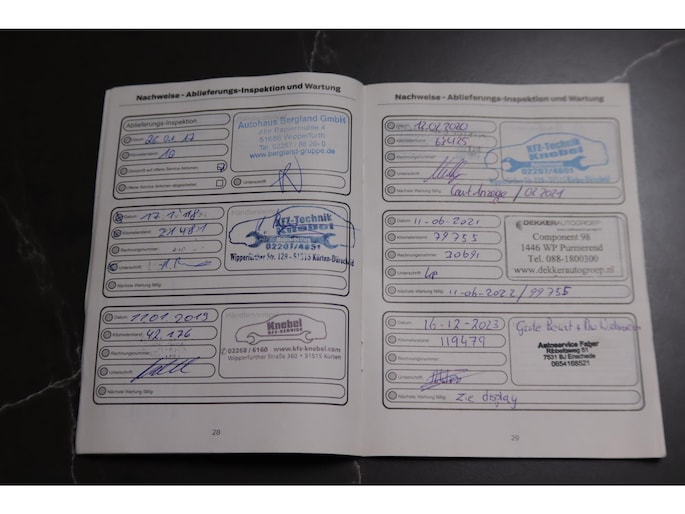 Nachweise - Ablieferungs-Inspektion und Wartung
Ablieferungs-Inspektion
Datum 26.01.17
Kilometerstand 10
Unterschrift
Autohaus Bergland GmbH
Alte Papiermühle 4
51688 Wipperfürth
www.bergland-gruppe.de
Datum 17.1.18
Kilometerstand 21481
Rechnungsnummer
Unterschrift
Nächste Wartung fällig
Kfz-Technik
Knebel
Meisterbetrieb
02207/4851
Wipperfürther Str. 129 - 51515 Kürten-Dürscheid
Datum 11.01.2019
Kilometerstand 42.176
Rechnungsnummer
Unterschrift
Nächste Wartung fällig
Knebel
KFZ-SERVICE
02268 / 6160 www.kfz-knebel.com
Wipperfürther Straße 360 • 51515 Kürten
28
Nachweise - Ablieferungs-Inspektion und Wartung
12.02.2020
Rechnungsnummer
Unterschrift
Nächste Wartung fällig Laut Anzeige / 01.2021
Kfz-Technik
Knebel
02207/4851
Datum 11-06-2021
Kilometerstand 79755
Rechnungsnummer
Unterschrift
Nächste Wartung fällig 11-06-2022 / 99755
DEKKERAUTOGROEP
Component 98
1446 WP Purmerend
Tel. 088-1800300
www.dekkerautogroep.nl
Datum 16-12-2023
Kilometerstand 119479
Rechnungsnummer
Unterschrift
Nächste Wartung fällig zie display
Grote Beurt +
Autoservice Faber
Ribbeltsweg 51
7531 BJ Enschede
0654168521
29